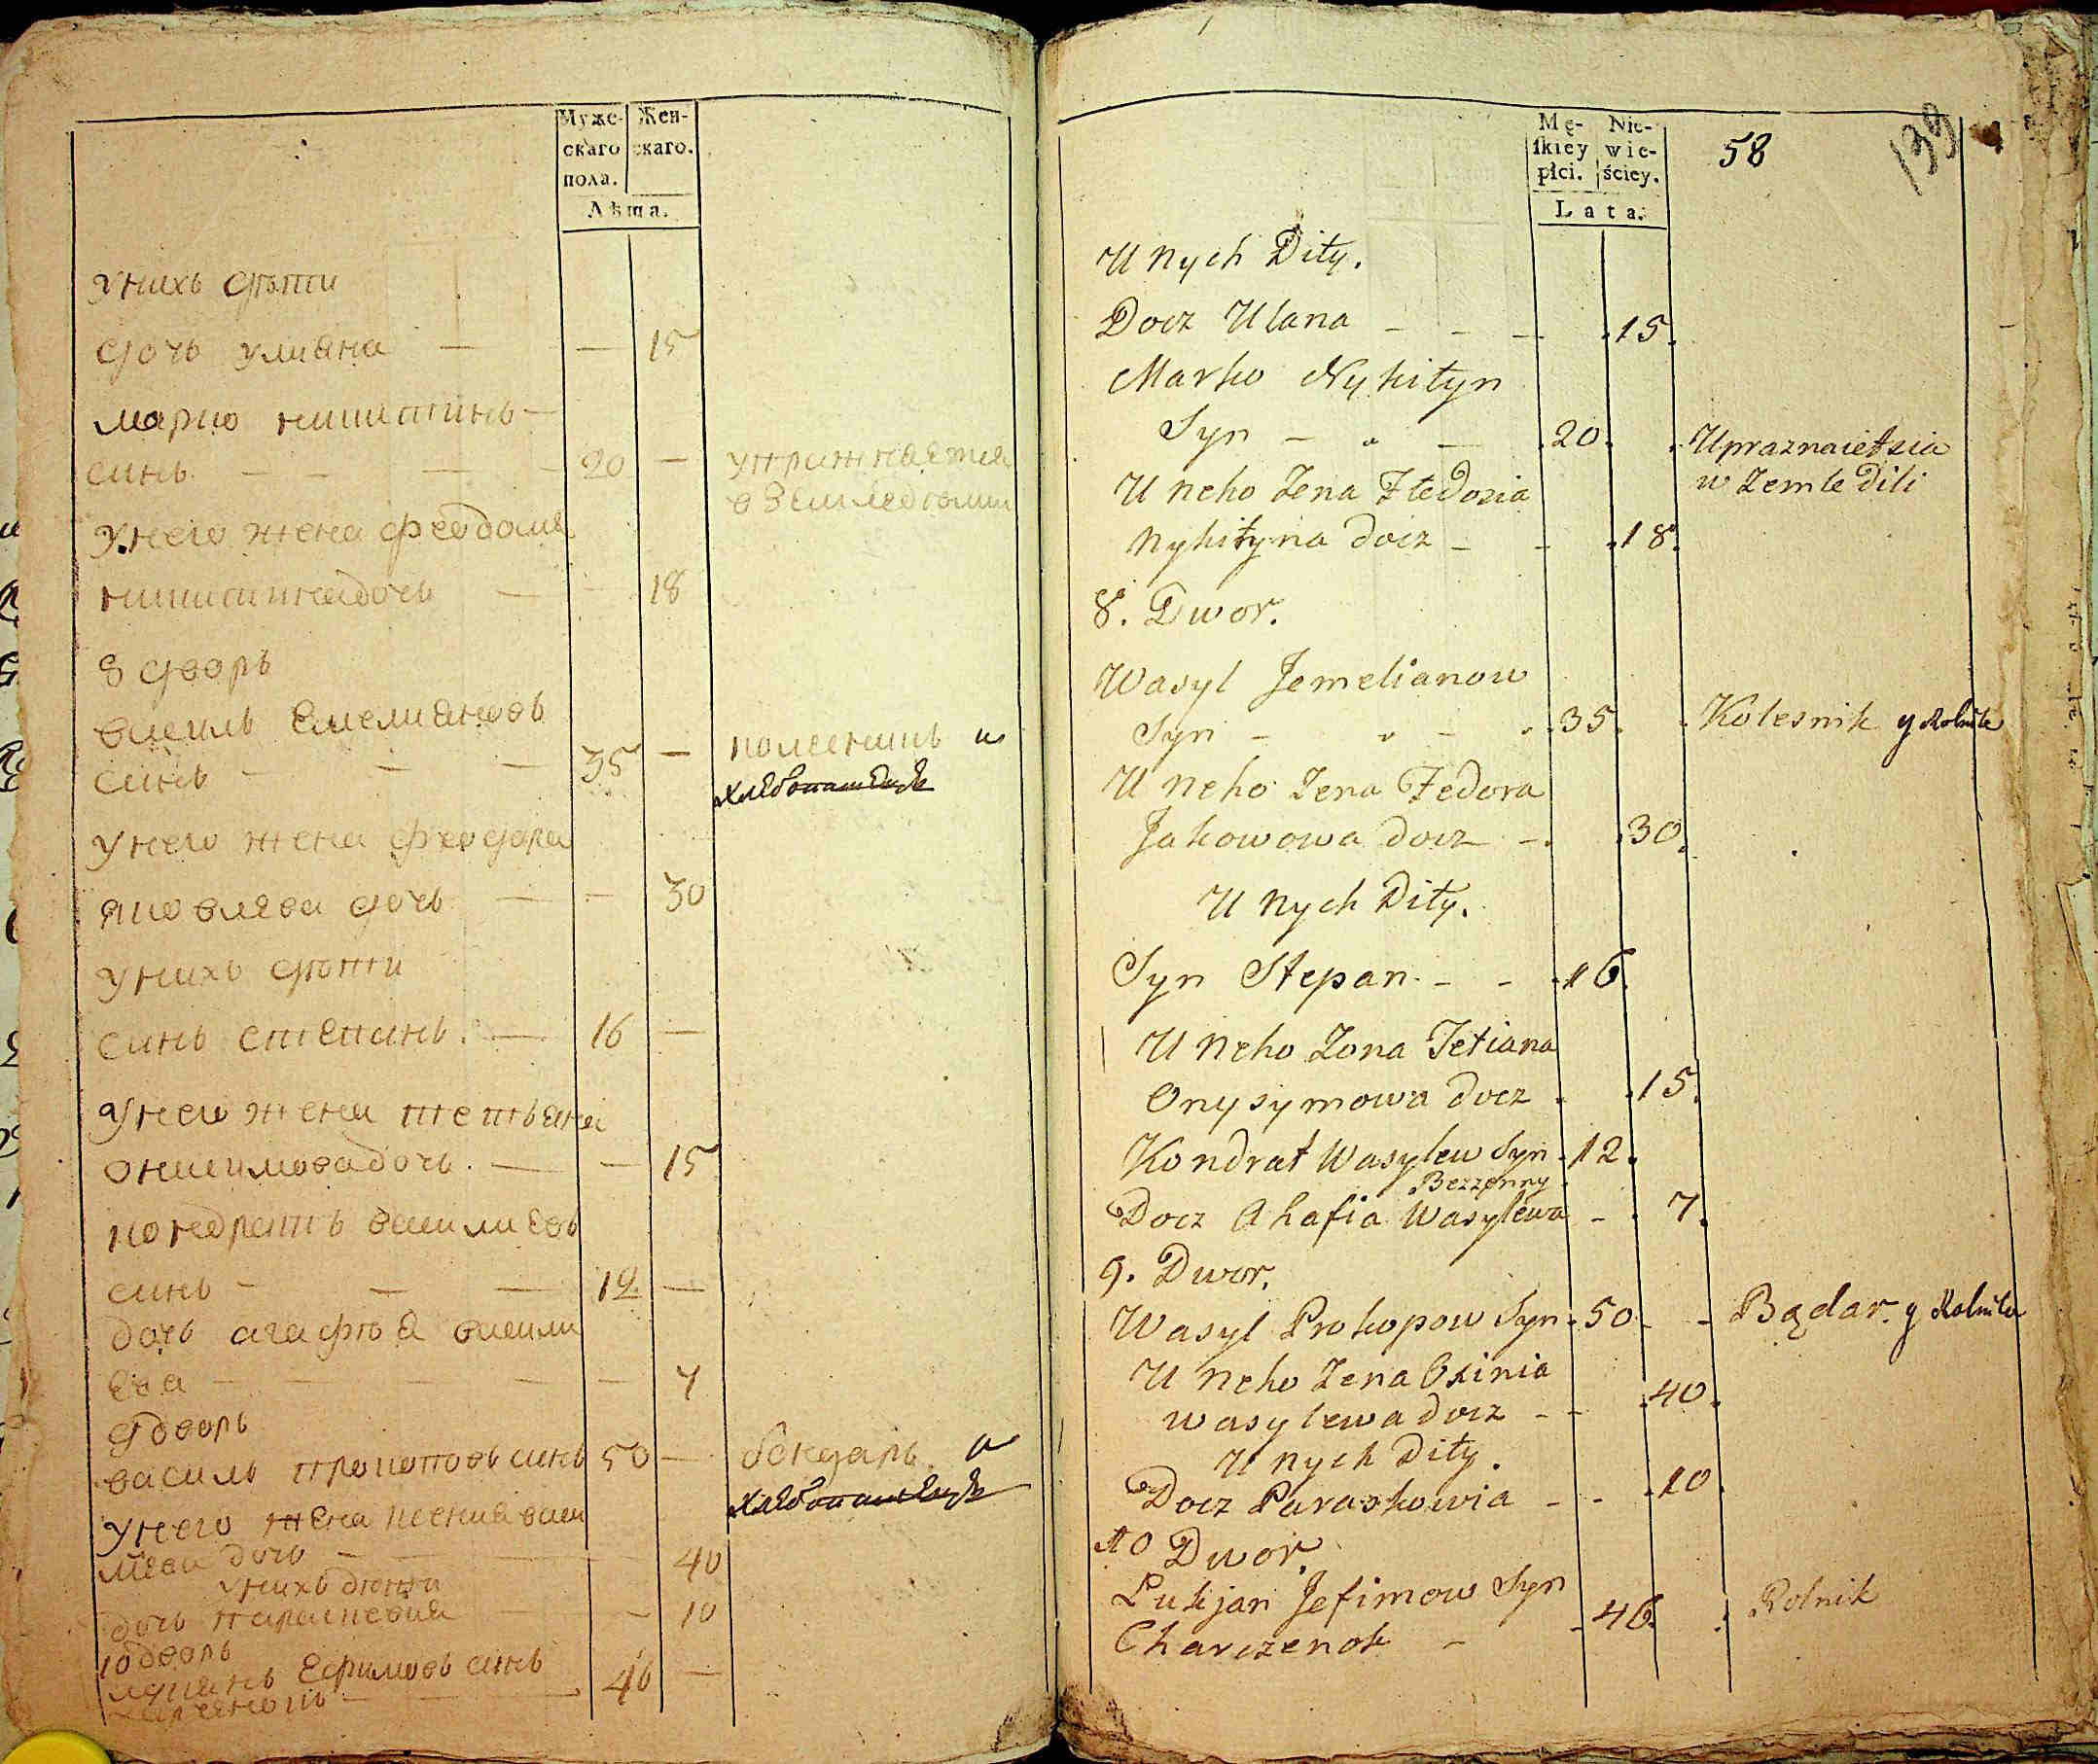 Муже- Жен-
скаго скаго.
пола.
Лѣта.
у нихъ дѣти
дочь улияна — — 15
марко никитинъ —
синъ — — — 20 — упражняется
в земледелии
у него жена феодосия
никитина дочь — — 18
8 дворъ
василь емелияновъ
синъ — — — 35 — колесникъ и
хлебопашецъ
у него жена феодора
яковлева дочь — — 30
у нихъ дѣти
синъ степанъ. — 16 —
у него жена тетьяна
онисимова дочь. — — 15
кондратъ василиевъ
синъ — — — 12 —
дочь агафья васили
ева — — — — — 7
9 дворъ
василь прокоповъ синъ 50 — бондарь. и
хлебопашецъ
у него жена ксения васи
лева дочь — — 40
у нихъ дѣти
дочь параскевия — — 10
10 дворъ
лукянъ ефимовъ синъ
харченокъ — — 46 —
Mę- Nie-
skiey wie-
płci. ściey.
Lata.
58
139
U Nych Dity.
Docz Ulana — — — .15.
Marko Nykityn
Syn — „ — .20. . Upraznaietsia
w Zemle Dili
U Neho Zena Ftedosia
Nykityna docz — - .18.
8. Dwor.
Wasyl Jemelianow
Syn — „ — „ .35. . Kolesnik y Rolnik
U Neho Zena Fedora
Jakowowa docz —. .30.
U Nych Dity.
Syn Stepan. — - .16.
U Neho Zona Tetiana
Onysymowa docz . .15.
Kondrat Wasylew Syn .12.
Bezzenny
Docz Ahafia Wasylewa — . 7.
9. Dwor.
Wasyl Prokopow Syn .50 - - Bądar. y Rolnik
U Neho Zena Oxinia
Wasylewa docz — - .40.
U Nych Dity.
Docz Paraskowia — - .10.
10 Dwor.
Lukjan Jefimow Syn
Charczenok — - 46. : Rolnik